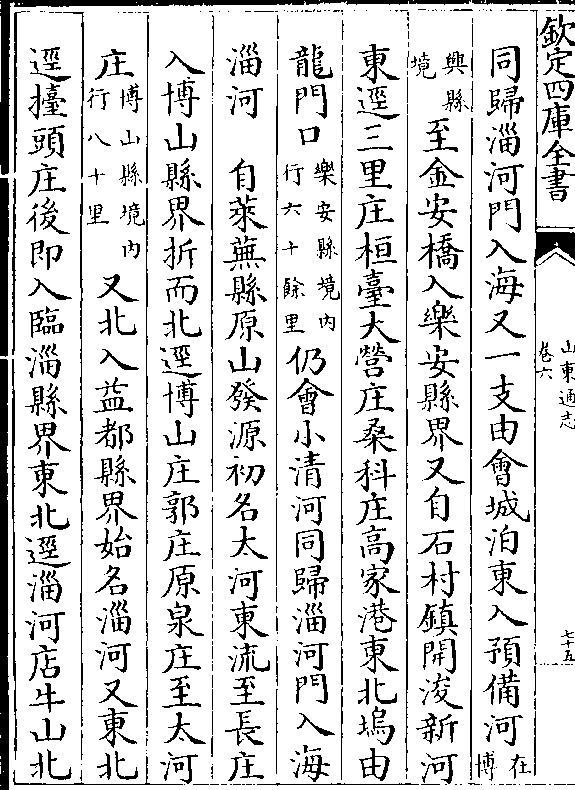 欽定四庫全書
山東通志
卷六
七十五
同歸淄河門入海又一支由會城泊東入預備河在博
興縣境至金安橋入樂安縣界又自石村鎮開浚新河
東逕三里庄桓臺大營庄桑科庄高家港東北塢由
龍門口樂安縣境内行六十餘里仍會小清河同歸淄河門入海
淄河 自萊蕪縣原山發源初名太河東流至長庄
入博山縣界折而北逕博山庄郭庄原泉庄至太河
庄博山縣境内行八十里又北入益都縣界始名淄河又東北
逕擡頭庄後即入臨淄縣界東北逕淄河店牛山北